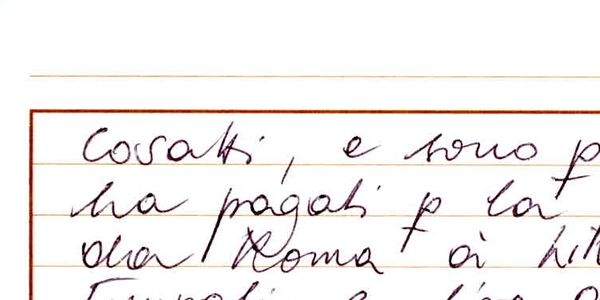 Cosatti, e sono p
ha pagati p la
da Roma à